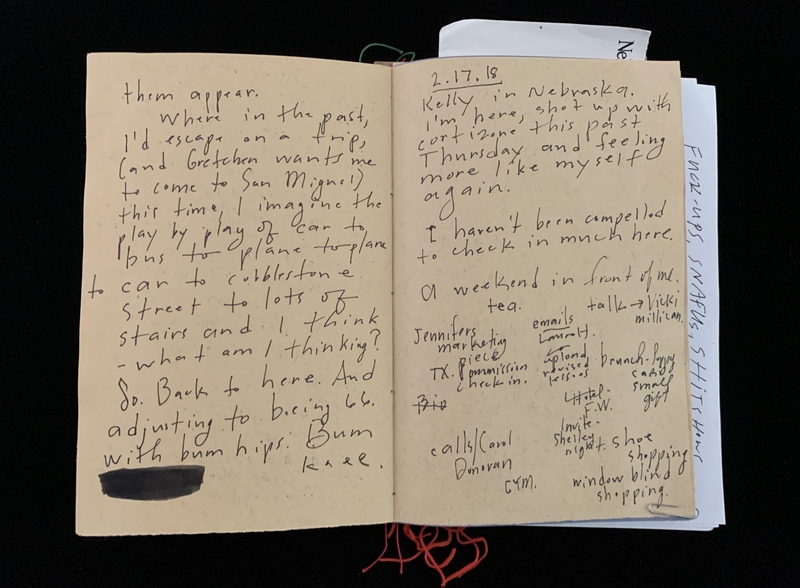 them appear.
Where in the past,
I'd escape on a trip,
(and Gretchen wants me
to come to San Miguel)
this time, I imagine the
play by play of car to
bus to plane to plane
to car to cobblestone
street to lots of
stairs and I think
- what am I thinking?
So. Back to here. And
adjusting to being 66.
with bum hips. Bum
knee.
2.17.18
Kelly in Nebraska.
I'm here, shot up with
cortizone this past
Thursday and feeling
more like myself
again.
I haven't been compelled
to check in much here.
a weekend in front of me.
tea.
talk → Vicki
Millican.
Jennifers
marketing
piece
TX. commission
check in.
Bio
emails
upload
revised
Hotel-
F.W.
Invite-
Shelley
night.
brunch-
small
gift
shoe
shopping
calls/Carol
Donovan
GYM.
window blind
shopping.
Ne
Fuck-ups, SNAFUs, Shitshows